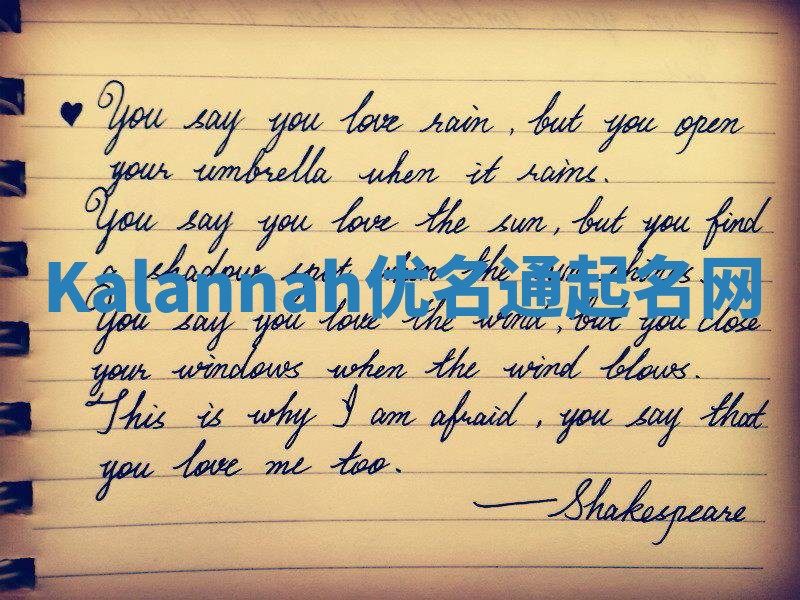 ♥ You say you love rain, but you open
your umbrella when it rains.
You say you love the sun, but you find
a shadow spot when the sun shines.
Kalannah优名通起名网
You say you love the wind, but you close
your windows when the wind blows.
This is why I am afraid, you say that
you love me too.
—Shakespeare